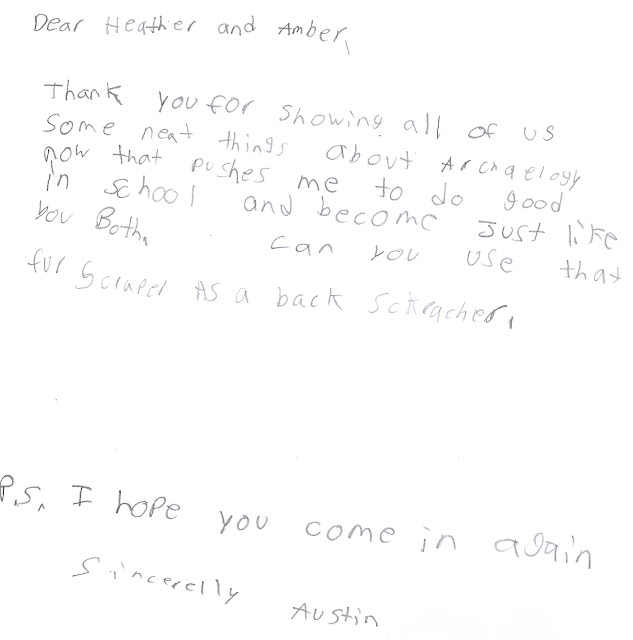 Dear Heather and Amber,
Thank you for showing all of us
some neat things about Archaelogy
now that pushes me to do good
in school and become Just like
you Both. can you use that
fur scraper As a back Sctracher.
P.S. I hope you come in again
Sincerelly
Austin